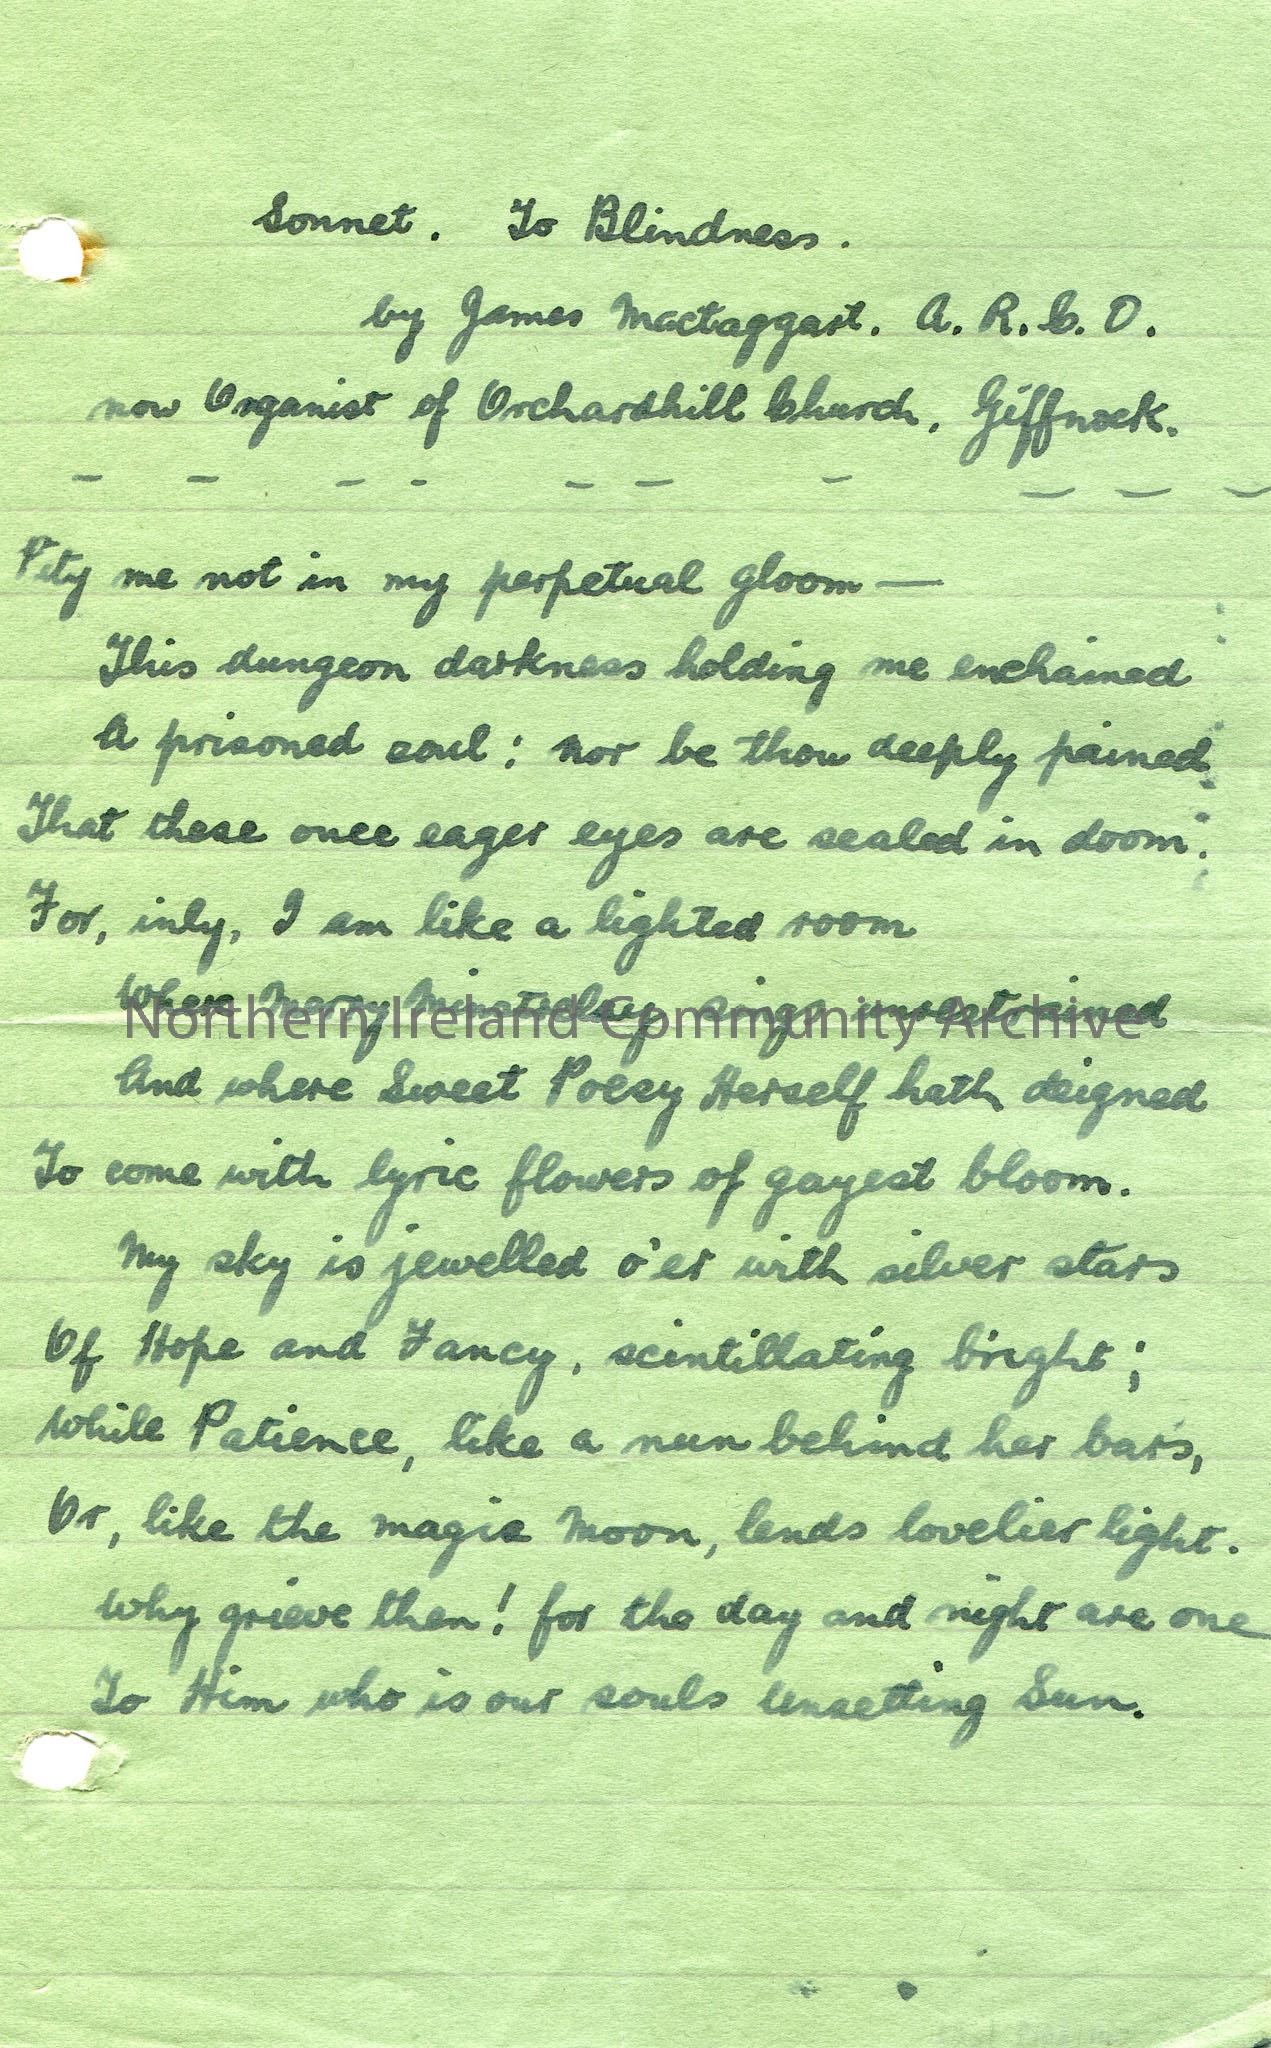 Sonnet. To Blindness.
by James Mactaggart. A. R. C. O.
now Organist of Orchardhill Church, Giffnock.
Pity me not in my perpetual gloom —
This dungeon darkness holding me enchained
A prisoned soul; nor be thou deeply pained
That these once eager eyes are sealed in doom;
For, inly, I am like a lighted room
Where Merry Minstrelsy sings unrestrained
Northern Ireland Community Archive
And where Sweet Poesy Herself hath deigned
To come with lyric flowers of gayest bloom.
My sky is jewelled o'er with silver stars
Of Hope and Fancy, scintillating bright;
While Patience, like a nun behind her bars,
Or, like the magic Moon, lends lovelier light.
Why grieve then! for the day and night are one
To Him who is our souls Unsetting Sun.